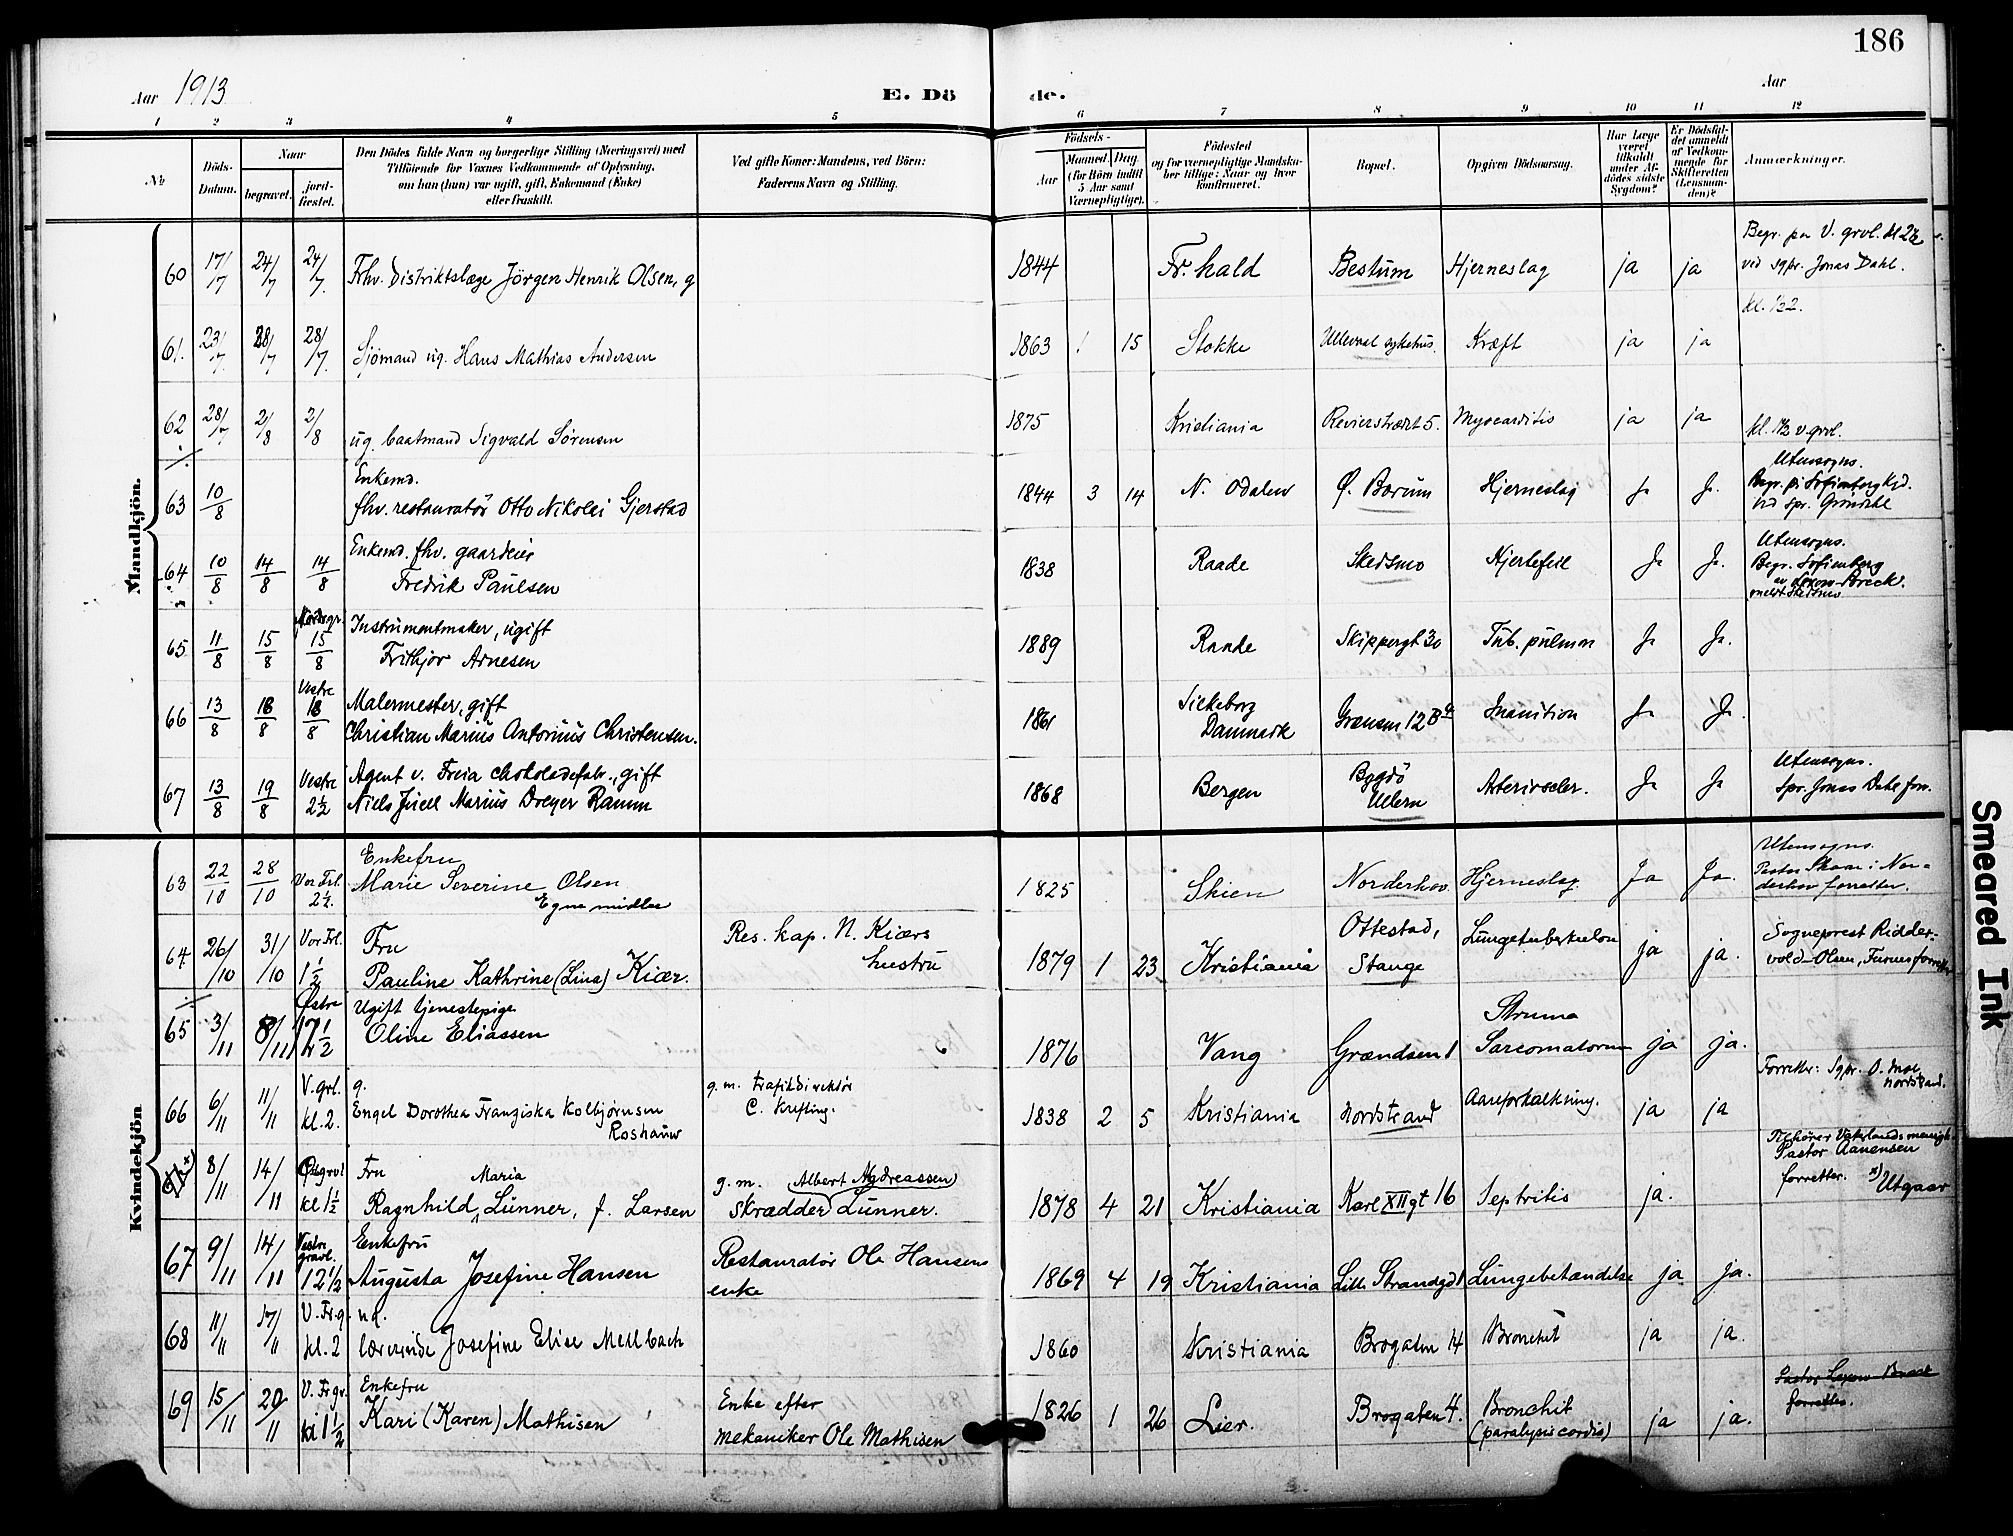 186
Aar 1913
E. Dö de.
Aar
1 2 3 4 5 6 7 8 9 10 11 12
№
Döds-Datum.
Naar
begravet.
jord-fæstet.
Den Dödes fulde Navn og borgerlige Stilling (Næringsvei) med
Tilföiende for Voxnes Vedkommende af Oplysning,
om han (hun) var ugift, gift, Enkemand (Enke)
eller fraskilt.
Ved gifte Koner: Mandens, ved Börn:
Faderens Navn og Stilling.
Födsels-
Aar
Maaned. Dag.
(for Börn indtil
5 Aar samt
Værnepligtige).
Födested
og for værnepligtige Mandska-
ber tillige: Naar og hvor
konfirmeret.
Bopæl.
Opgiven Dödsaarsag.
Har Læge
været
tilkaldt
under Af-
dödes sidste
Sygdom?
Er Dödsfal-
det anmeldt
af Vedkom-
mende for
Skifteretten
(Lensman-
den)?
Anmærkninger.
Mandkjön.
60 17/7 24/7 24/7 Frhv. Distriktslæge Jörgen Henrik Olsen, g 1844 Fr.hald Bestum Hjerneslag ja ja Begr. paa V. grvl. kl 2½ ved sgpr. Jonas Dahl.
kl. ½2.
61. 23/7 28/7 28/7 Sjömand ug. Hans Mathias Andersen 1863 1 15 Stokke Ullevaal sykehus. Kræft ja ja
62 28/7 2/8 2/8 ug. baatmand Sigvald Sørensen 1875 Kristiania Revierstrædet 5. Myocarditis ja ja kl. 1½ v. grvl.
63 10/8 Enkemd. fhv. restauratör Otto Nikolai Gjerstad 1844 3 14 N. Odalen Ø. Bærum Hjerneslag Ja Ja. Utensogns. Begr. på Sofienberg Kgd. ved spr. Gröndahl
64 10/8 14/8 14/8 Enkemd. fhv. gaardeier Fredrik Paulsen 1838 Raade Skedsmo Hjertefeil Ja Ja. Utensogns. Begr. Sofienberg
meldt Skedsmo
65 11/8 15/8 Nordregr. 15/8 Instrumentmaker, ugift Frithjov Arnesen 1889 Raade Skippergt 30 Tub. pulmon Ja Ja.
66 13/8 18/8 Vestre 18/8 Malermester, gift Christian Marius Antonius Christensen. 1861 Silkeborg Danmark Grænsen 12 B 4 Inanition Ja Ja
67 13/8 19/8 Vestre 2½ Agent v. Freia chokoladefabr., gift Niels Juell Marius Dreyer Ramm 1868 Bergen Bygdö Ullern Arterioscler. Ja Ja Utensogns. Spr. Jonas Dahl forr.
Kvindekjön
63 22/10 28/10 Vor Frl. 2½. Enkefru Marie Severine Olsen Egne midler 1825 Skien Norderhov. Hjerneslag. Ja Ja. Utensogns. Pastor Skaar i Norderhov forretter.
64 26/10 31/10 Vor Frl. 1½ Fru Pauline Kathrine (Lina) Kiær. Res. kap. N. Kiærs hustru 1879 1 23 Kristiania Ottestad, Stange Lungetuberkulose ja ja. Sogneprest Riddervold-Olsen, Furnes forretter
65 3/11 8/11 Østre 12½ Ugift tjenestepige. Oline Eliassen 1876 Vang Grændsen 1 Struma Sarcomatorum ja ja.
66 6/11 11/11 V. grl. kl. 2. g. Engel Dorothea Franziska Kolbjørnsen Roshauw g. m. trafikdirektør C. Krefting. 1838 2 5 Kristiania Nordstrand Aareforkalkning. ja ja Forretter: Sgpr. O. Moe Nordstrand.
8/11 14/11 Ø. grvl kl 1½ Fru Ragnhild Maria Lunner, f. Larsen g. m. Skrædder Albert Andreassen Lunner. 1878 4 21 Kristiania Karl XII gt 16 Septritis ja. Tilhører Vaterlands menigh. Pastor Aanensen forretter. x) Utgaar
67 9/11 14/11 Vestre gravl. 12½ Enkefru Augusta Josefine Hansen Restauratør Ole Hansens enke 1869 4 19 Kristiania Lille Strandgd 1 Lungebetændelse ja ja.
68 11/11 17/11 V. Fr. g. kl. 2 ug. lærerinde Josefine Elise Mellbach 1860 Kristiania Brogaten 14 Bronchit ja ja.
69 15/11 20/11 V. Fr gr. kl 1½ Enkefru Kari (Karen) Mathisen Enke efter mekaniker Ole Mathisen 1826 1 26 Lier. Brogaten 4. Bronchit (paralysis cordis) ja ja. forretter.
Smeared Ink